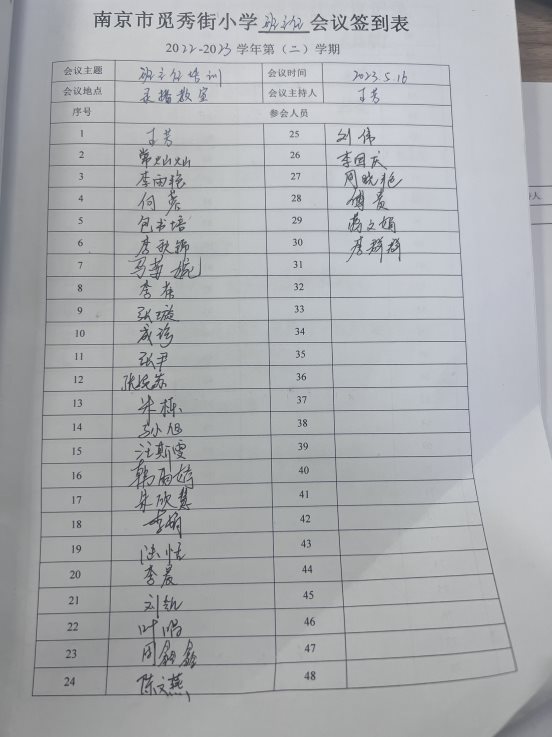 南京市觅秀街小学班主任会议签到表
2022-2023学年第（二）学期
会议主题 班主任培训 会议时间 2023.5.16
会议地点 录播教室 会议主持人 王芳
序号 参会人员
1 王芳 25 刘伟
2 常灿灿 26 李国庆
3 李雨艳 27 周晓艳
4 何蓉 28 傅贵
5 包书培 29 蒋文娟
6 李秋锦 30 李群群
7 马莉娓 31
8 李蓓 32
9 张璇 33
10 咸瑶 34
11 张尹 35
12 苏 36
13 朱栋 37
14 马小旭 38
15 汪斯雯 39
16 韩雨婷 40
17 朱欣慧 41
18 李娟 42
19 陆恬 43
20 李晨 44
21 刘 45
22 叶鸣 46
23 周鑫 47
24 陈文燕 48
人